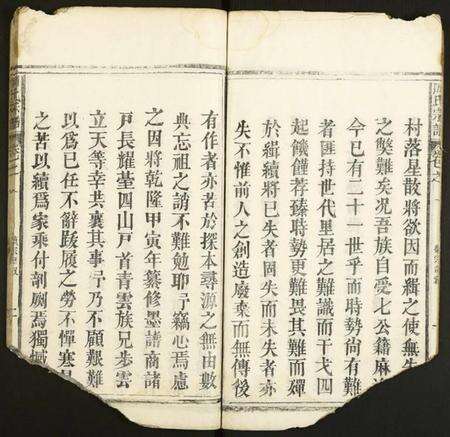 氏宗譜
村落星散將欲因而緝之使無失
之獘難矣况吾族自愛七公籍麻
今已有二十一世乎而時勢尚有難
者匪持世代里居之難識而干戈四
起饑饉荐臻時勢更難畏其難而殫
於緝續將已失者固失而未失者亦
失不惟前人之創造廢棄而無傳後
有作者亦苦於探本尋源之無由數
典忘祖之誚不難勉耶予竊心焉慮
之因將乾隆甲寅年纂修墨譜商諸
戶長耀塋四山戶首青雲族兄步雲
立天等幸共襄其事予乃不顧艱難
以爲已任不辭跋履之勞不憚寒
之苦以續爲家乘付剞劂焉獨憾